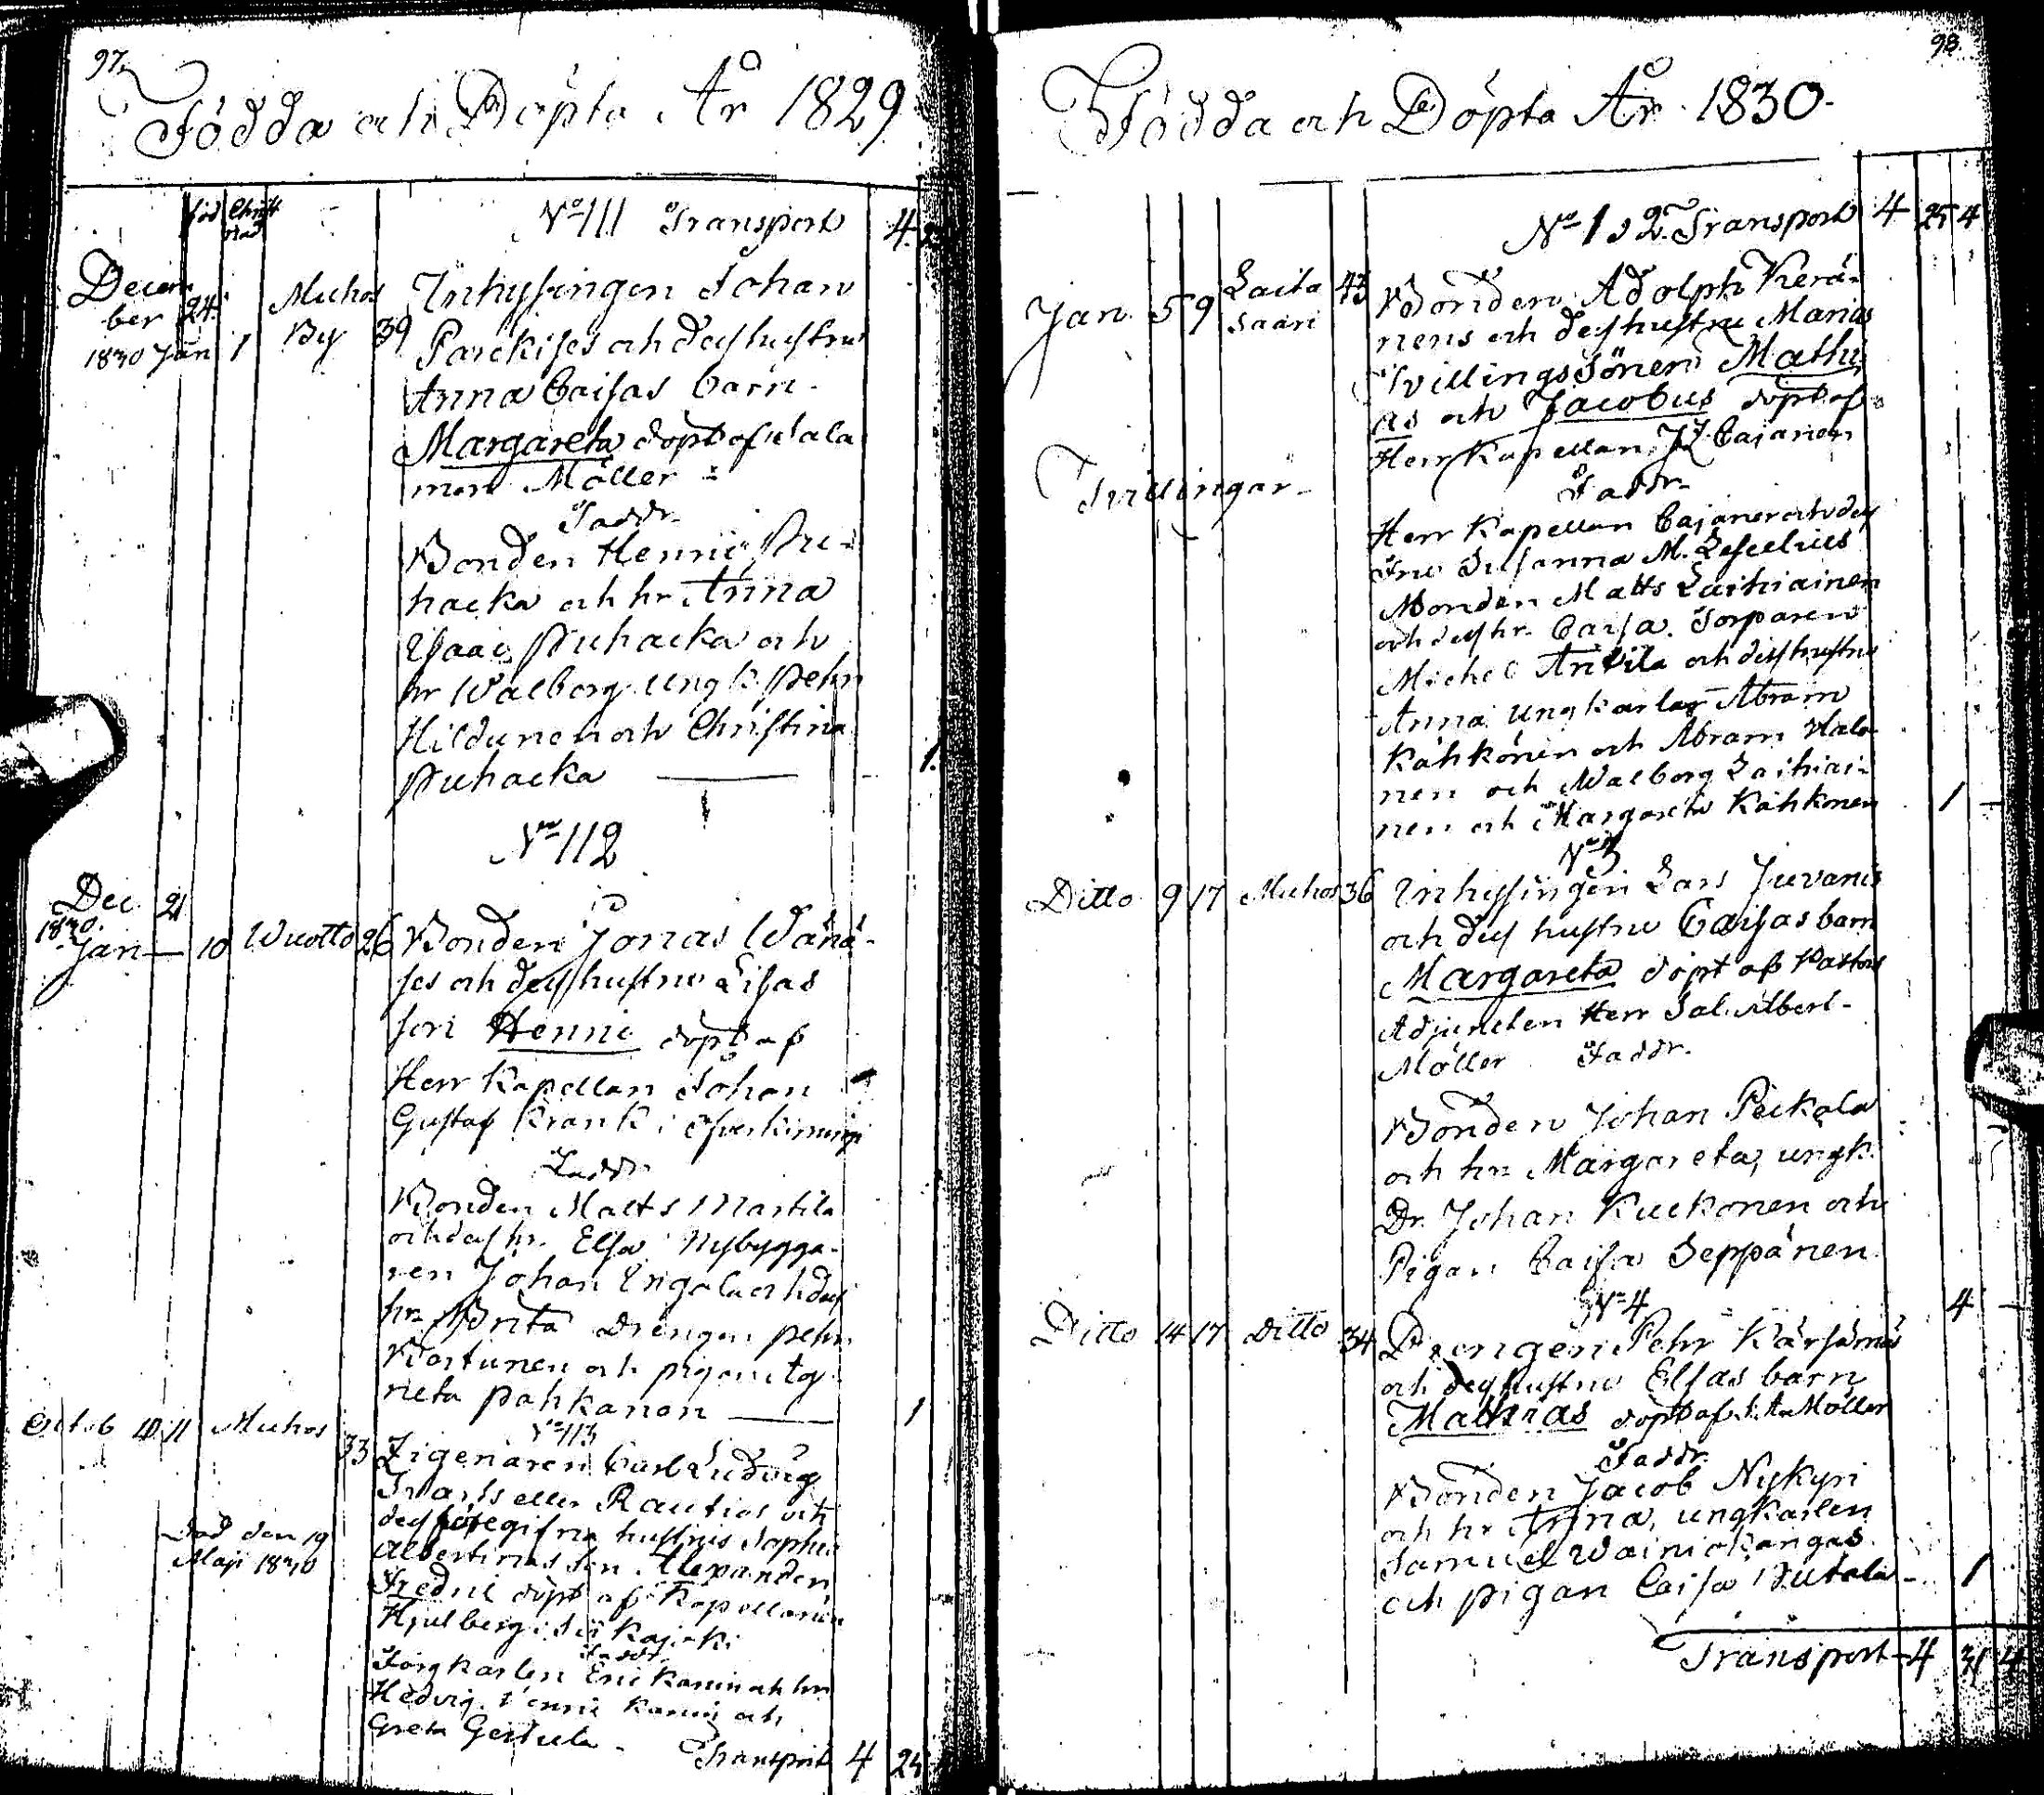 97.
Födda och Döpta År 1829
född Christnad
No 111 Transport 4
Decem
ber 24.
1830 Jan 1
Muhos
By 39
Inhysingen Johan
och dess hustru
Anna Caisas barn
Margareta döpt af Sala
mon Möller
Faddr.
Bonden Henric Pu-
hacka och hr Anna
Isaac Puhacka och
hr Walborg ungk. Pehr
Hildunen och Christina
Puhacka 1.
No 112
Dec 21
1830.
Jan 10 Wuotto 26
Bonden Jonas Wänä-
ses och dess hustru Lisas
son Henric döpt af
Herr Kapellan Johan
Gustaf Krank i
Faddr.
Bonden Matts Martila
och dess hr. Elsa Nybygga-
ren Johan och dess
hr Brita drengen Pehr
och pigan
reta Pahkanen 1
No 113
Octob 10 11 Muhos 33
Zigenaren Carl Ludvig
eller Rautios och
dess hustrus Sophia
Albertinas son Alexander
Fredric döpt af Kapellanen
Hjulberg i
Faddr.
Eric och hr
Hedvig
Greta
död den 19
Maji 1830
Transport 4 25
98.
Födda och Döpta År 1830.
No 1, 2. Transport 4 25 4
Jan. 5 9 Laita
saari 43
Bonden Adolph Kerä-
nens och dess hustru Marias
Tvillings Söner Mathi
as och Jacobus döpt af
Herr Kapellan Cajanen
Tvillingar
Faddr.
Herr Kapellan Cajaner och dess
Fru Susanna M.
Bonden Matts Laithiainen
och dess hr. Caisa. Torparen
Michel Anttila och dess hustru
Anna ungkarlar Abram
Kähkönen och Abram Halo-
nen och Walborg Laihiai-
nen och Margareta Kähkönen 1
No 3
Ditto 9 17 Muhos 36
Inhysingen Lars Juvanis
och dess hustru Caisas barn
Margareta döpt af Pastors
Adjuncten Herr Sal. Albert
Möller Faddr.
Bonden Johan Peckala
och hr. Margareta, ungk.
Dr. Johan Kuckonen och
Pigan Caisa Seppänen
No 4 4
Ditto 14 17 Ditto 34
Drengen Pehr Kärsämäs
och dess hustru Elsas barn
Mathias döpt af S. A. Möller
Faddr.
Bonden Jacob Nykyri
och hr Anna, ungkarlen
Samuel Wainiokangas
och pigan Caisa 1
Transport 4 31 4